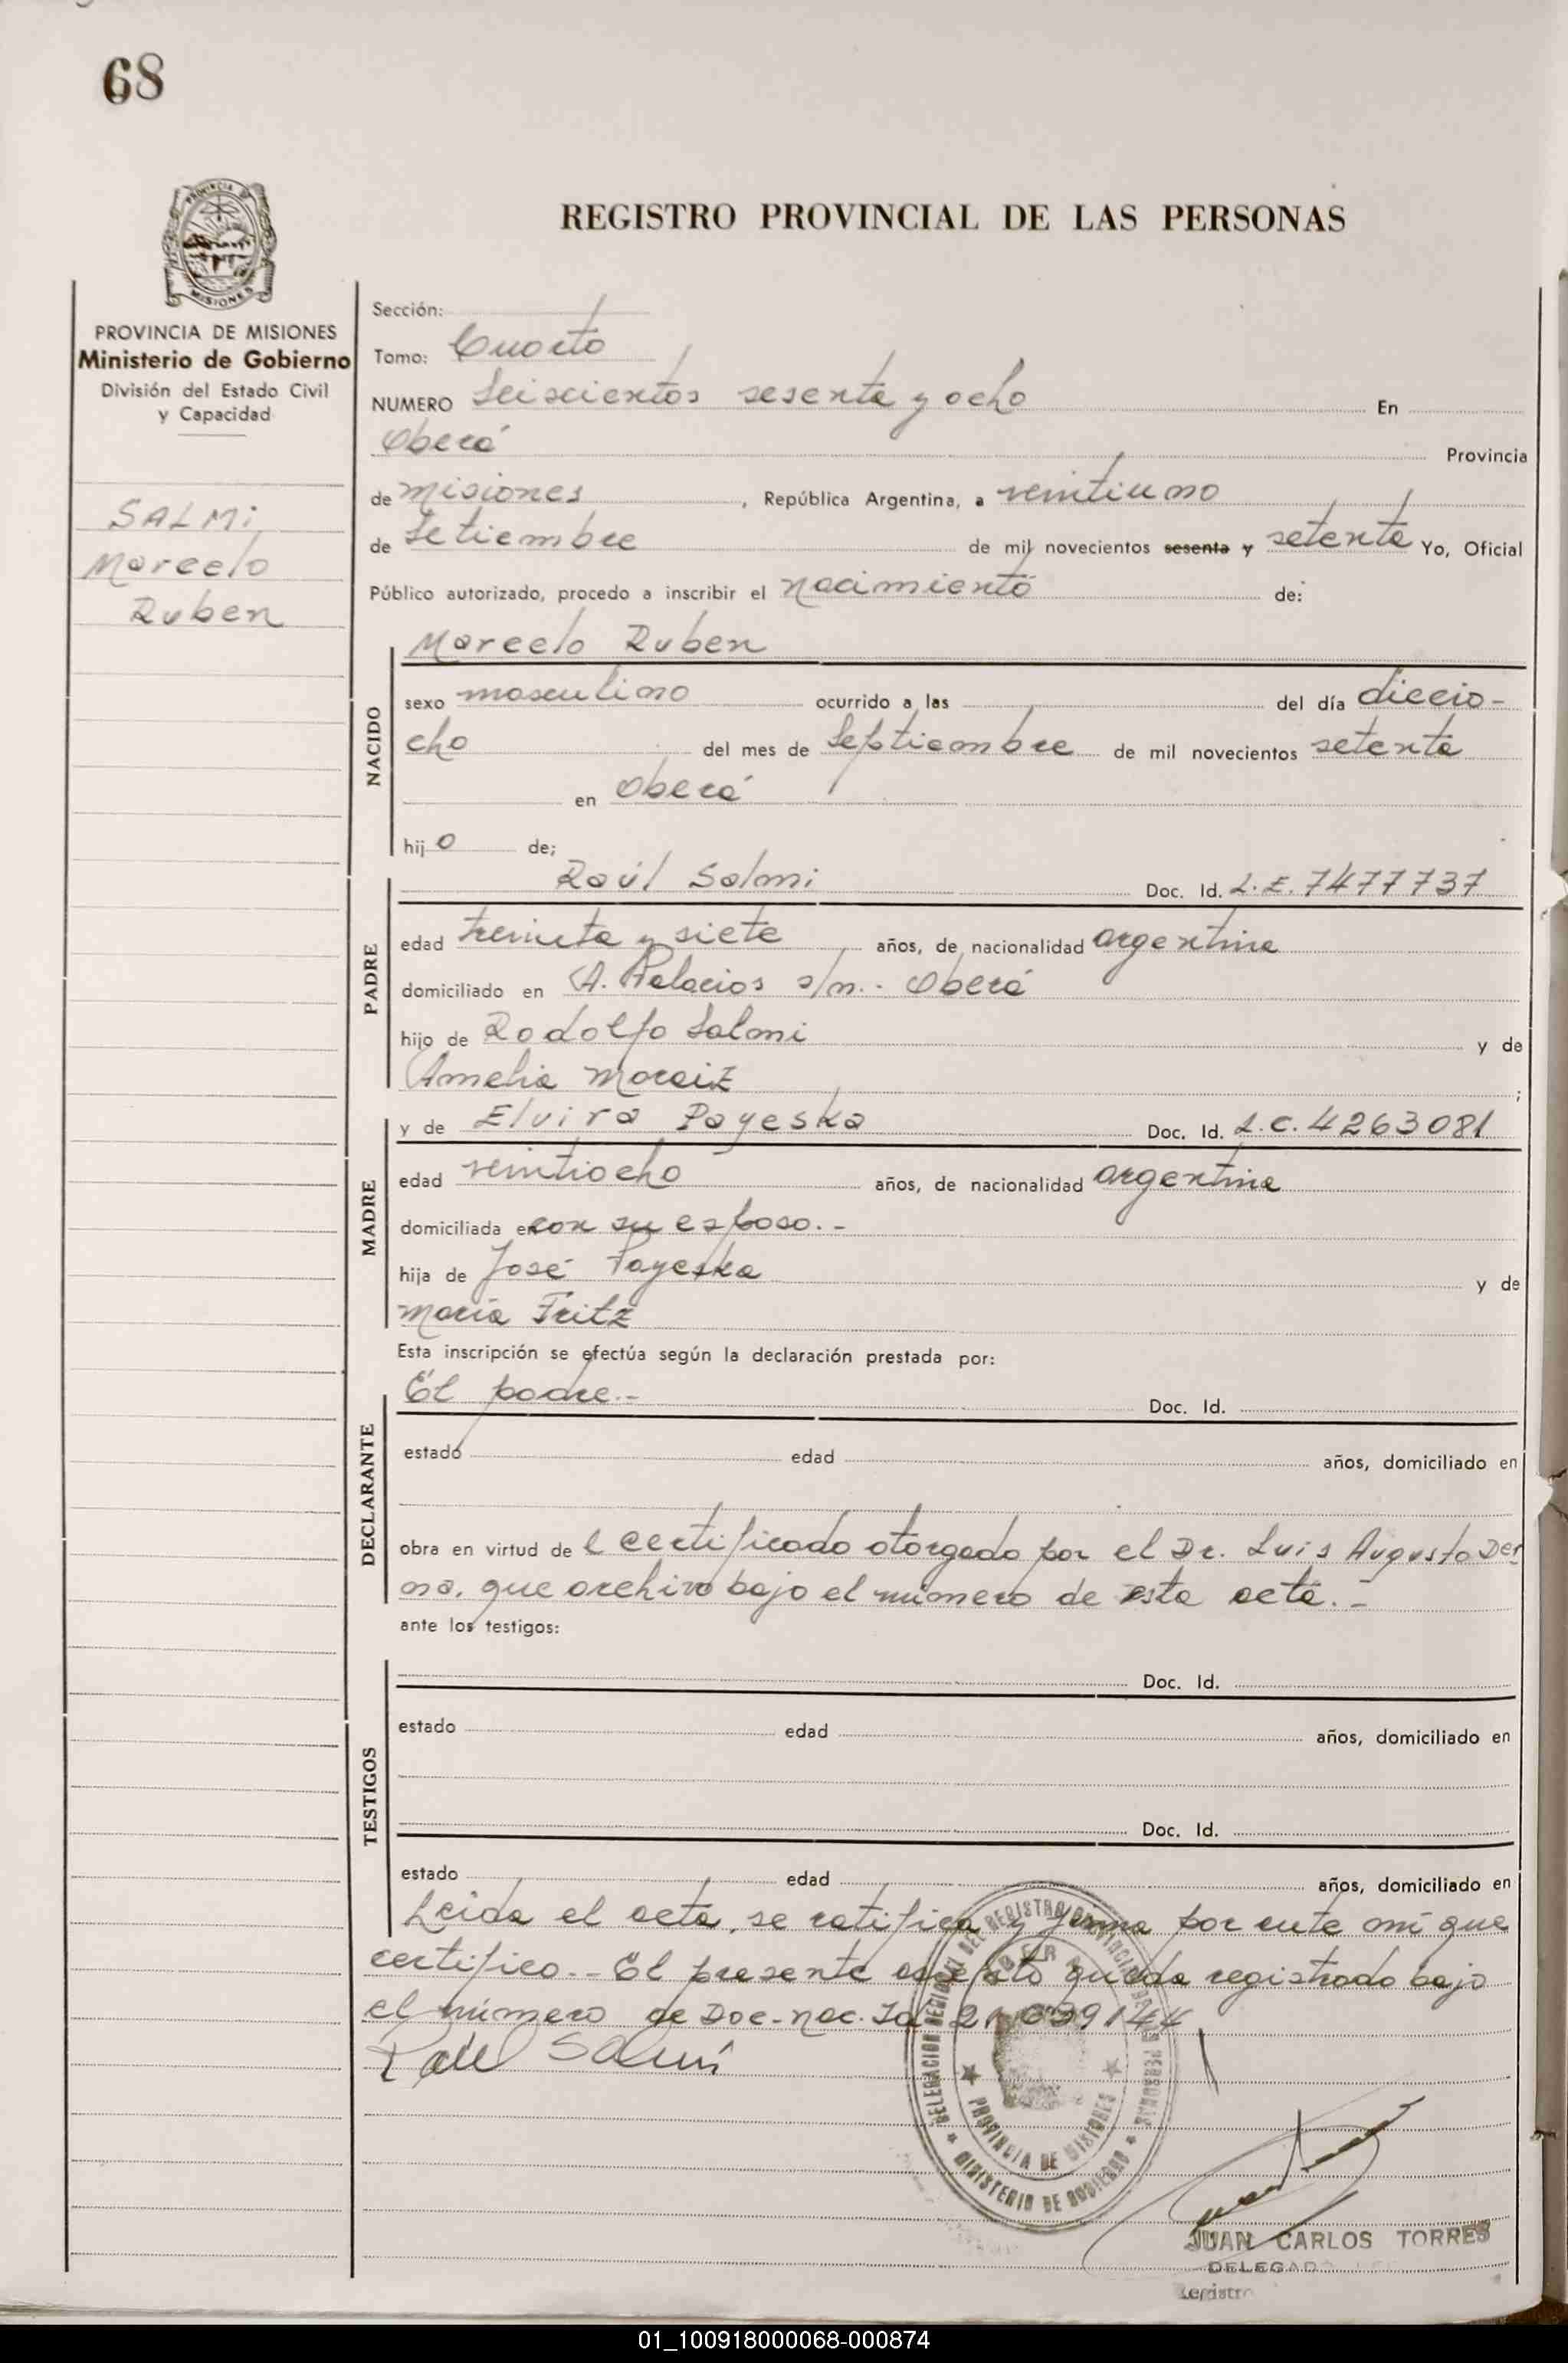 68
PROVINCIA DE MISIONES
REGISTRO PROVINCIAL DE LAS PERSONAS
PROVINCIA DE MISIONES
Ministerio de Gobierno
División del Estado Civil
y Capacidad
SALMi
Marcelo
Ruben
Sección:
Tomo: Cuarto
NUMERO Seiscientos sesenta y ocho En
Oberá Provincia
de Misiones, República Argentina, a veintiuno
de Setiembre de mil novecientos sesenta y setenta Yo, Oficial
Público autorizado, procedo a inscribir el nacimiento de:
Marcelo Ruben
NACIDO
sexo masculino ocurrido a las del día diecio-
cho del mes de Septiembre de mil novecientos setenta
en Oberá
hijo de;
Raúl Salmi Doc. Id. L.E. 7477737
PADRE
edad treinta y siete años, de nacionalidad argentina
domiciliado en A. Palacios s/n.- Oberá
hijo de Rodolfo Salmi y de
Amelia Moraiz ;
y de Elvira Payeska Doc. Id. L.C. 4263081
MADRE
edad veintiocho años, de nacionalidad argentina
domiciliada en con su esposo.-
hija de José Payeska y de
María Fritz
Esta inscripción se efectúa según la declaración prestada por:
El padre.- Doc. Id.
DECLARANTE
estado edad años, domiciliado en
obra en virtud de l certificado otorgado por el Dr. Luis Augusto Der
na, que archivo bajo el número de esta acta.-
ante los testigos:
Doc. Id.
TESTIGOS
estado edad años, domiciliado en
Doc. Id.
estado edad años, domiciliado en
Leida el acta, se ratifica y firma por ante mí que
certifico.- El presente queda registrado bajo
el número de Doc. Nac. Id 21039144
Raúl Salmi
PROVINCIA DE MISIONES
MINISTERIO DE GOBIERNO
JUAN CARLOS TORRES
DELEGADO
Registro
01_100918000068-000874